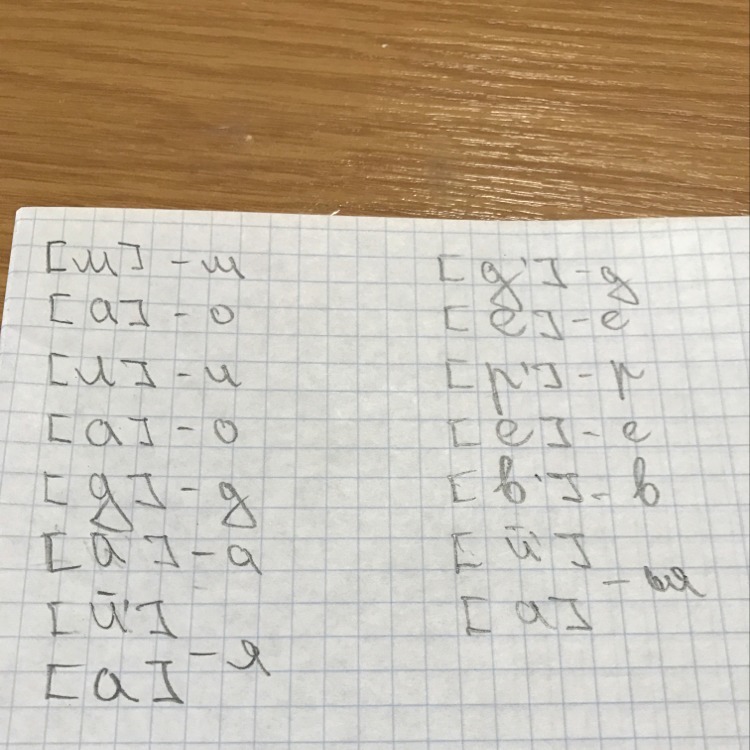 [м] - м
[а] - о
[л] - л
[а] - о
[д] - д
[а] - а
[й']
[а] - я
[д'] - д
[е] - е
[р'] - р
[е] - е
[в'] - в
[й']
[а] - ья